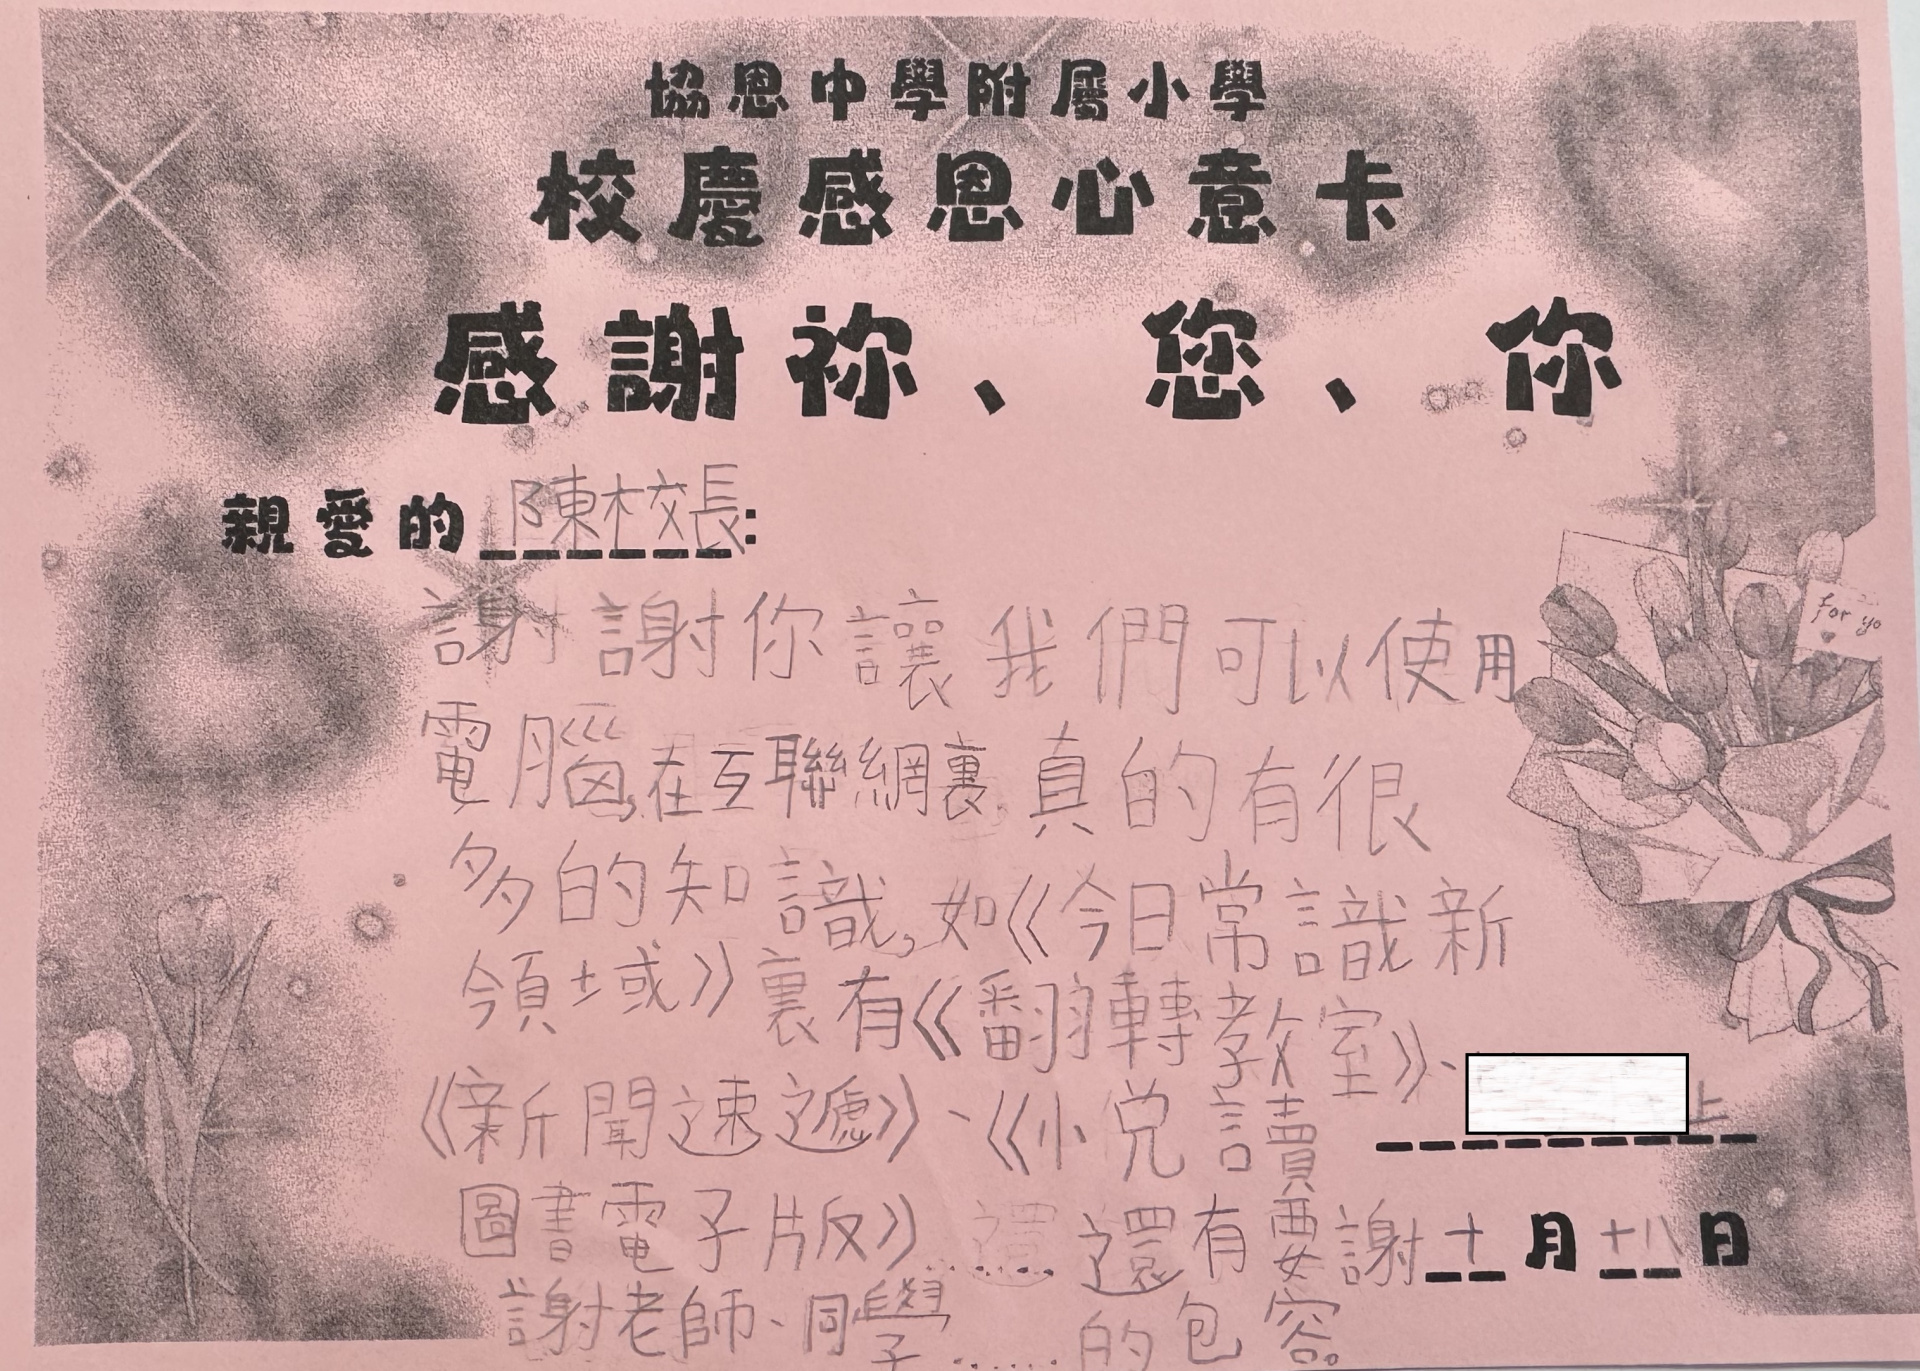 協恩中學附屬小學
校慶感恩心意卡
感謝祢、您、你
親愛的陳校長:
謝謝你讓我們可以使用
電腦,在互聯網裏,真的有很
多的知識,如《今日常識新
領域》裏有《翻轉教室》、
《新聞速遞》、《小兌讀
圖書電子版》……還有要謝
謝老師、同學……的包容。
上
十月十八日
for yo